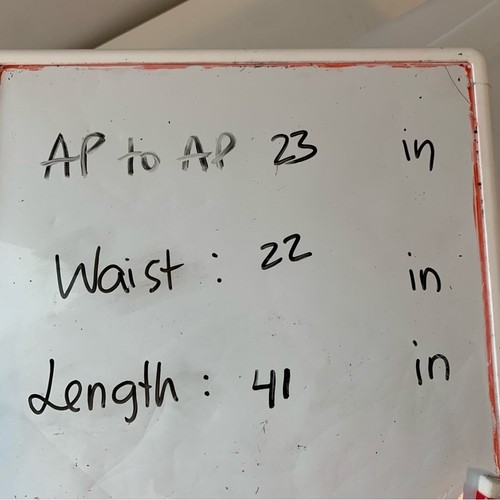 AP to AP 23 in
Waist : 22 in
Length : 41 in